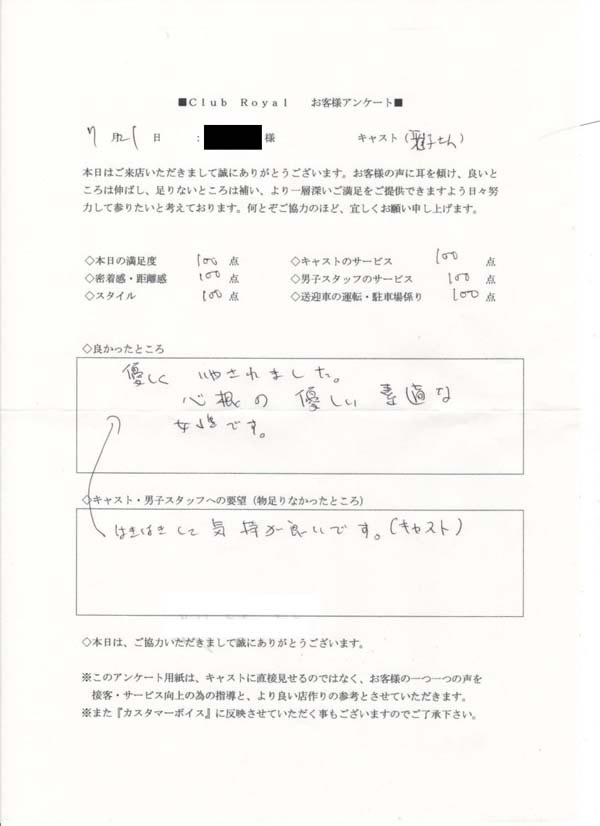 ■Club Royal お客様アンケート■
7月21日 : 様 キャスト(雅子さん)
本日はご来店いただきまして誠にありがとうございます。お客様の声に耳を傾け、良いと
ころは伸ばし、足りないところは補い、より一層深いご満足をご提供できますよう日々努
力して参りたいと考えております。何とぞご協力のほど、宜しくお願い申し上げます。
◇本日の満足度 100 点 ◇キャストのサービス 100 点
◇密着感・距離感 100 点 ◇男子スタッフのサービス 100 点
◇スタイル 100 点 ◇送迎車の運転・駐車場係り 100 点
◇良かったところ
優しく 癒されました。
心根の優しい素直な
女性です。
◇キャスト・男子スタッフへの要望(物足りなかったところ)
はきはきして気持が良いです。(キャスト)
◇本日は、ご協力いただきまして誠にありがとうございます。
※このアンケート用紙は、キャストに直接見せるのではなく、お客様の一つ一つの声を
接客・サービス向上の為の指導と、より良い店作りの参考とさせていただきます。
※また『カスタマーボイス』に反映させていただく事もございますのでご了承下さい。